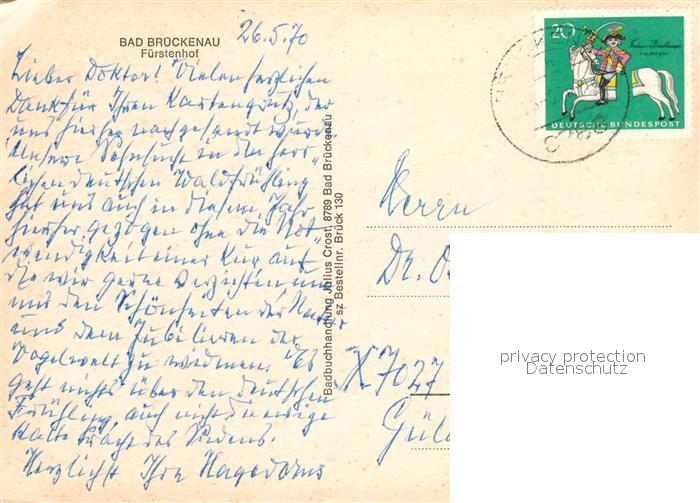 BAD BRÜCKENAU
Fürstenhof
26.5.70
Lieber Doktor! Vielen herzlichen
Dank für Ihren Kartengruß, der
uns hierher nachgesandt wurde
Unsere Sehnsucht in den herr-
lichen deutschen Waldfrühling
hat uns auch in diesem Jahr
hierher gezogen ohne die Not-
wendigkeit einer Kur auf
die wir gerne verzichten um
uns den Schönheiten der Natur
und dem Jubilieren der
Vogelwelt zu widmen. Es
geht nichts über den deutschen
Frühling, auch nicht die ewige
Pracht des Südens.
Herzlichst Ihre Hagedorns
Badbuchhandlung Julius Crost, 8789 Bad Brückenau
sz Bestellnr. Brück 130
20
DEUTSCHE BUNDESPOST
Herrn
Dr.
X 7027
privacy protection
Datenschutz